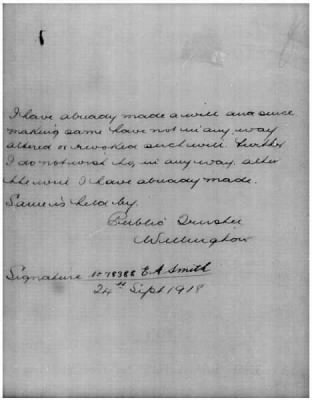 I have already made a will and since
making same have not in any way
altered or revoked such will. Further
I do not wish to, in any way, alter
the will I have already made.
Same is held by.
Public Trustee
Wellington
Signature No 78388 E A Smith
24th Sept 1918